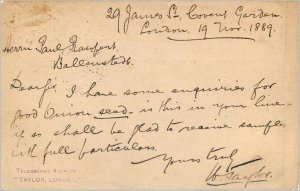 29 James St, Covent Garden
London, 19 Nov. 1889.
Herrn Paul
Ballenstedt.
Dear Sir I have some enquiries for
good Onion seed - is this in your line
if so shall be glad to receive samples
with full particulars.
Yours truly
TELEGRAPHIC ADDRESS
"TAYLOR, LONDON"
W Taylor.